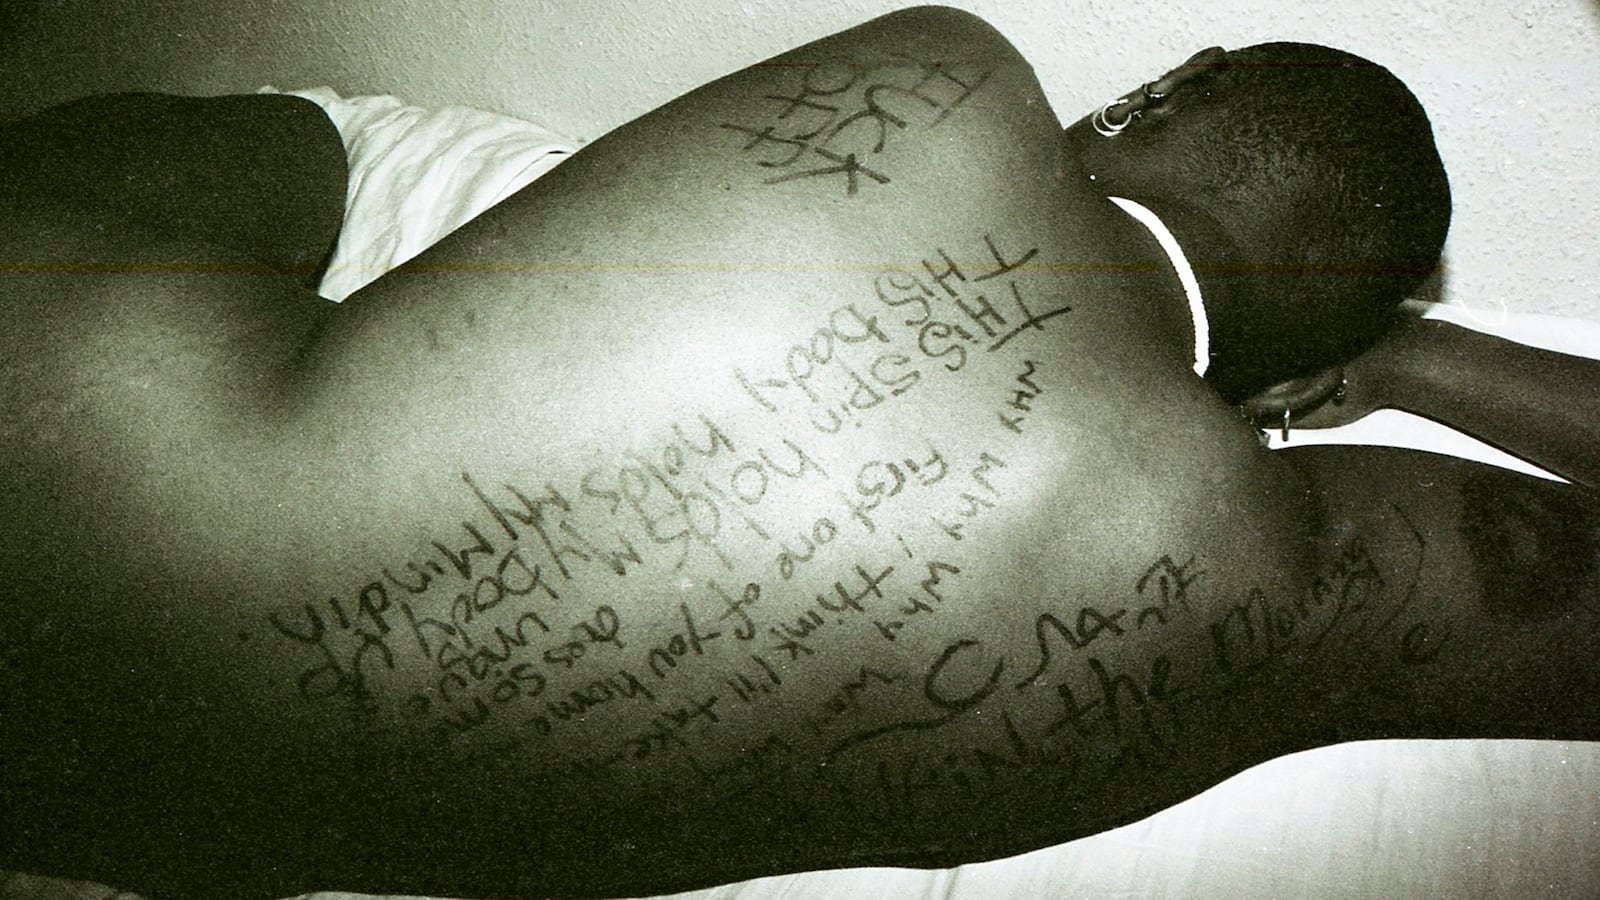 FUCK
OFF
WHY WHY WHY WHY
I think I'll take
First one of you home
does some
THIS SPIN holds MY body UP
THIS body holds MY Mind in
in the Morning